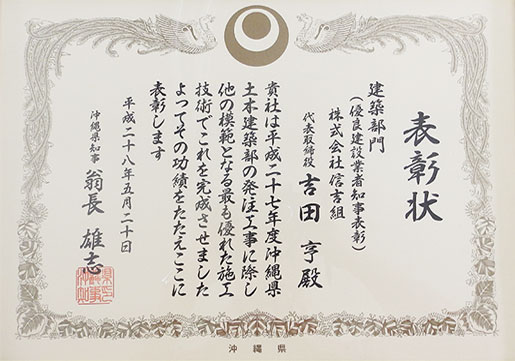 表彰状
建築部門
(優良建設業者知事表彰)
株式会社信吉組
代表取締役 吉田 亨 殿
貴社は平成二十七年度沖縄県
土木建築部の発注工事に際し
他の模範となる最も優れた施工
技術でこれを完成させました
よってその功績をたたえここに
表彰します
平成二十八年五月二十日
沖縄県知事 翁長 雄志
沖縄県